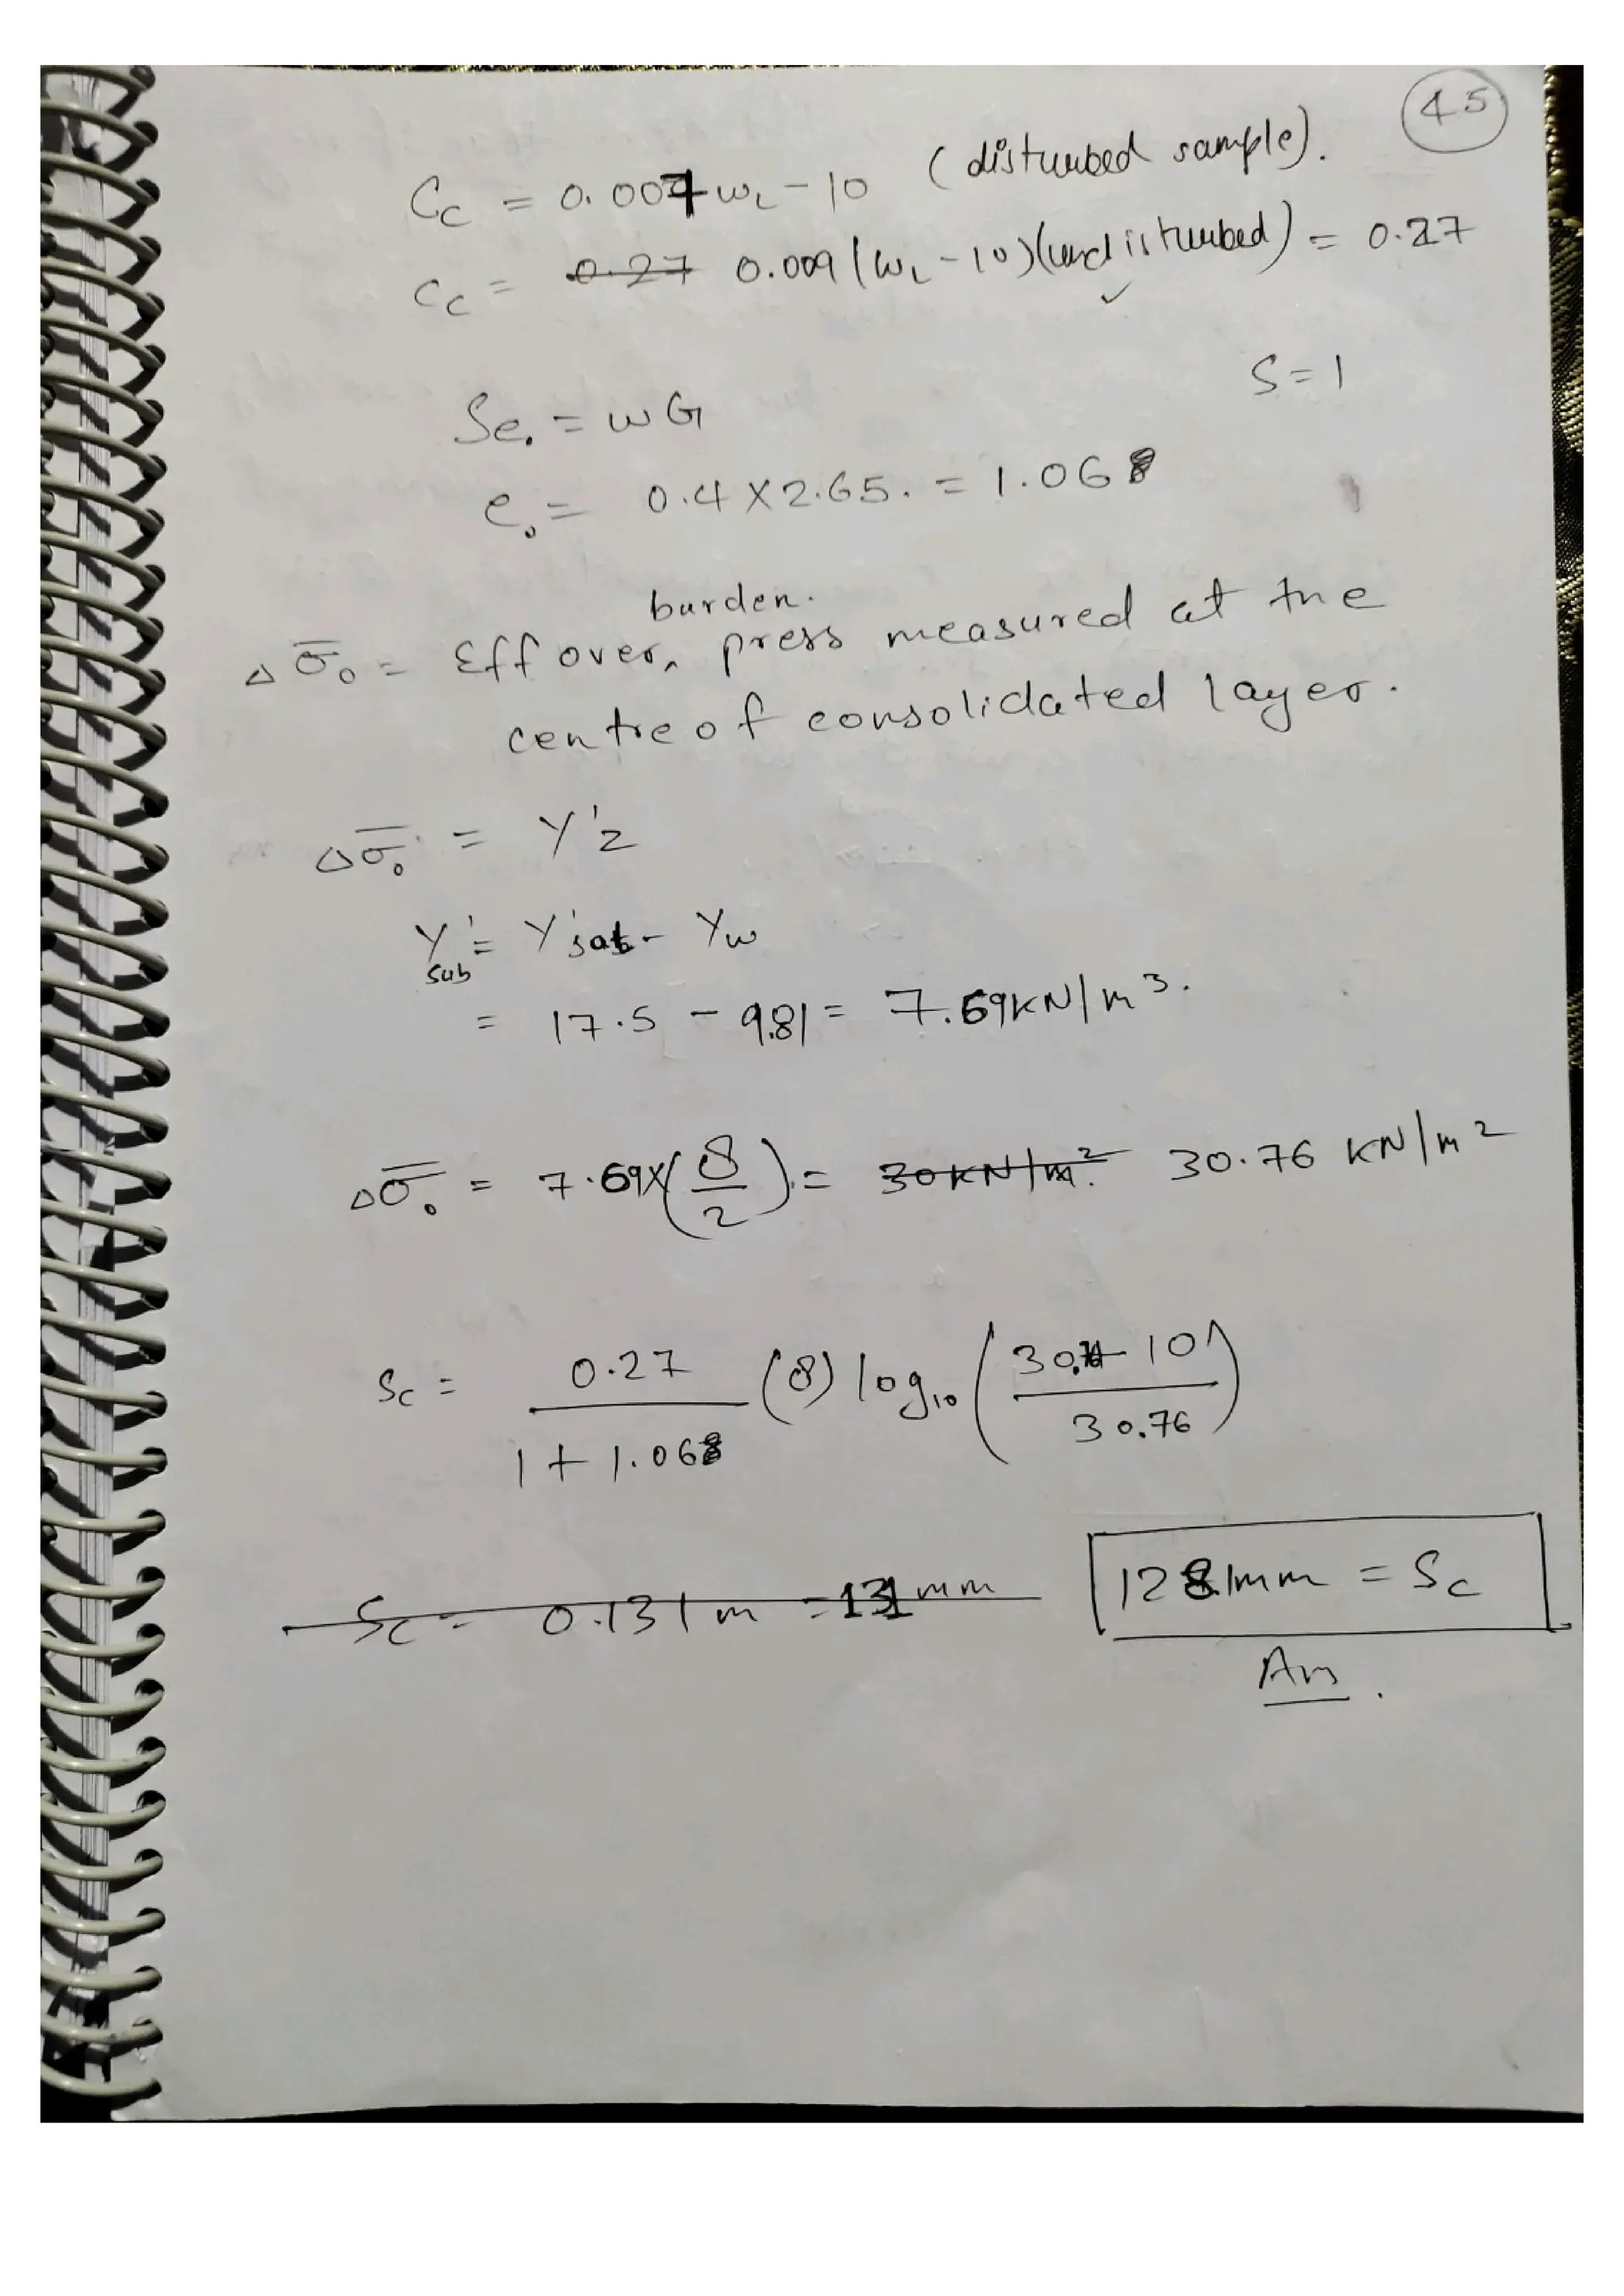 45
Cc = 0.007 wL - 10 (disturbed sample).
Cc = 0.27 0.009 (wL - 10)(undisturbed) = 0.27
✓
S = 1
Se₀ = wG
e₀ = 0.4 X 2.65. = 1.068
burden.
Δσ̅₀ = Eff over^ press measured at the
centre of consolidated layer.
Δσ̅₀ = γ'z
γ'sub = γ'sat - γw
= 17.5 - 9.81 = 7.69 KN/m³.
Δσ̅₀ = 7.69 X (8/2) = 30 KN/m². 30.76 KN/m²
Sc = 0.27/(1 + 1.068) (8) log₁₀ ((30.76 + 10)/30.76)
Sc = 0.131 m = 131 mm
128.1mm = Sc
Ans.